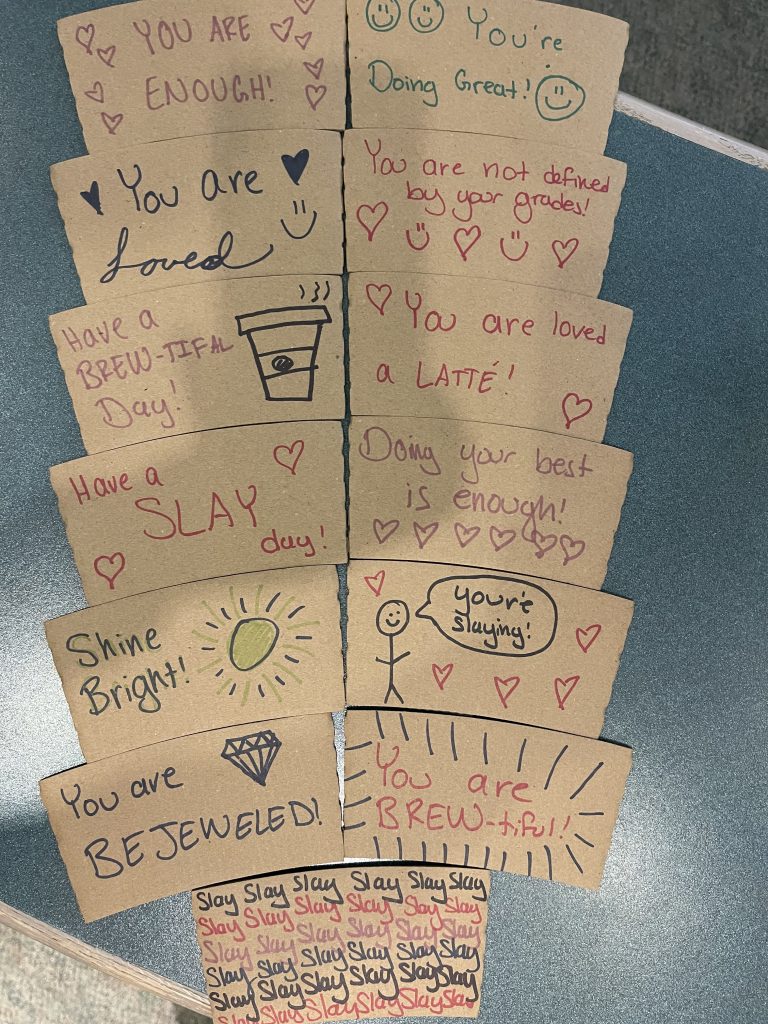 YOU ARE
ENOUGH!
You're
Doing Great!
You are
Loved
You are not defined
by your grades!
Have a
BREW-TIFAL
Day!
You are loved
a LATTÉ!
Have a
SLAY
day!
Doing your best
is enough!
Shine
Bright!
you're
slaying!
You are
BEJEWELED!
You are
BREW-tiful!
Slay Slay Slay Slay Slay Slay
Slay Slay Slay Slay Slay Slay
Slay Slay Slay Slay Slay Slay
Slay Slay Slay Slay Slay Slay
Slay Slay Slay Slay Slay Slay
Slay Slay Slay Slay Slay Slay